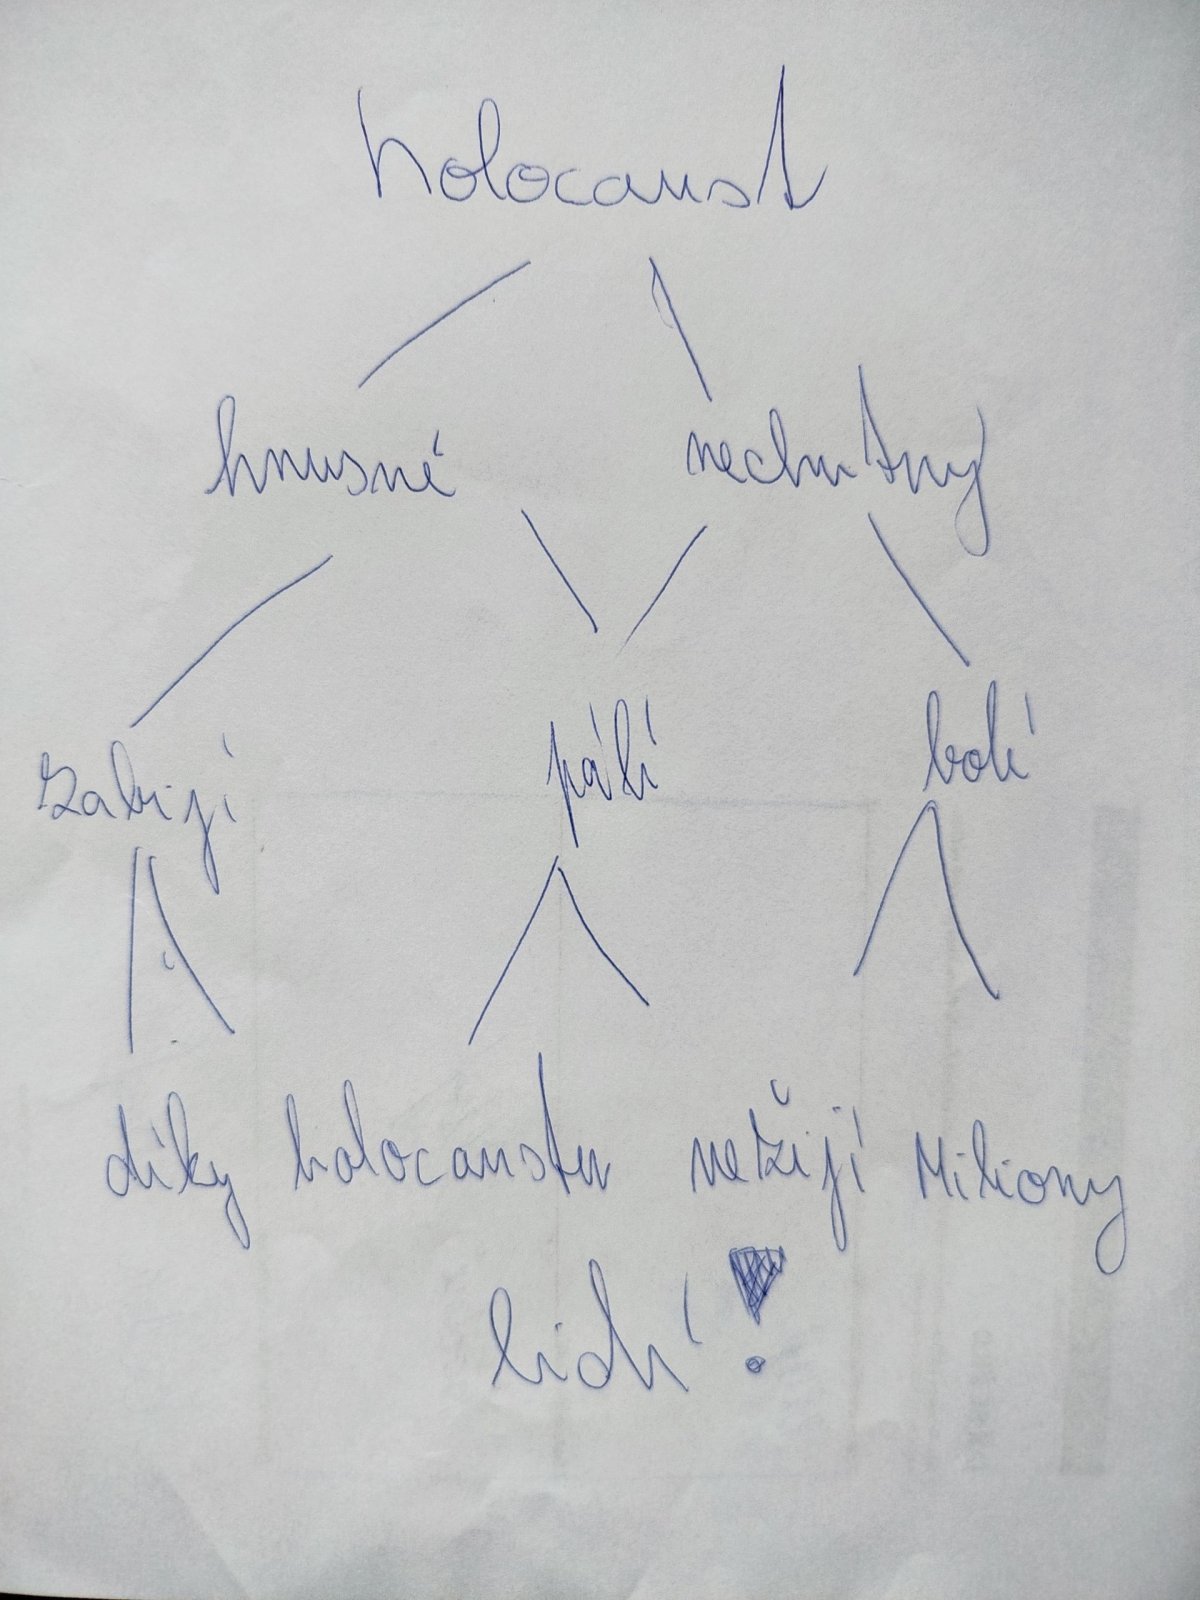 holocaust
hnusné nechutný
zabijí pálí bolí
díky holocaustu nežijí Miliony
lidí!